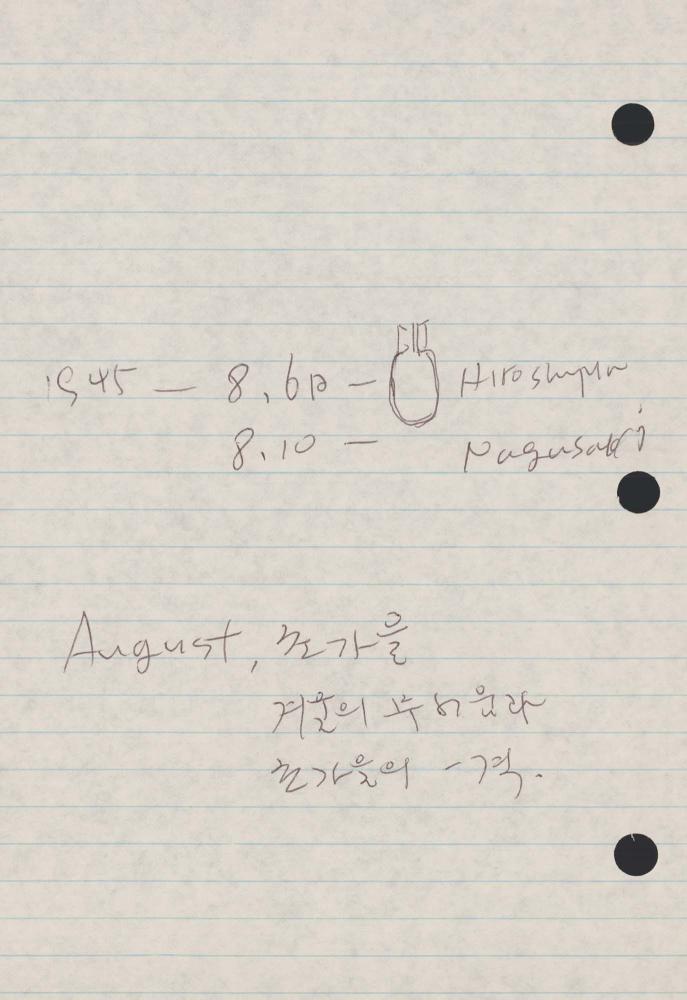 1945 — 8.6일 — Hiroshima
8.10 — Nagasaki
August, 초가을
겨울의 무거움과
초가을의 일격.